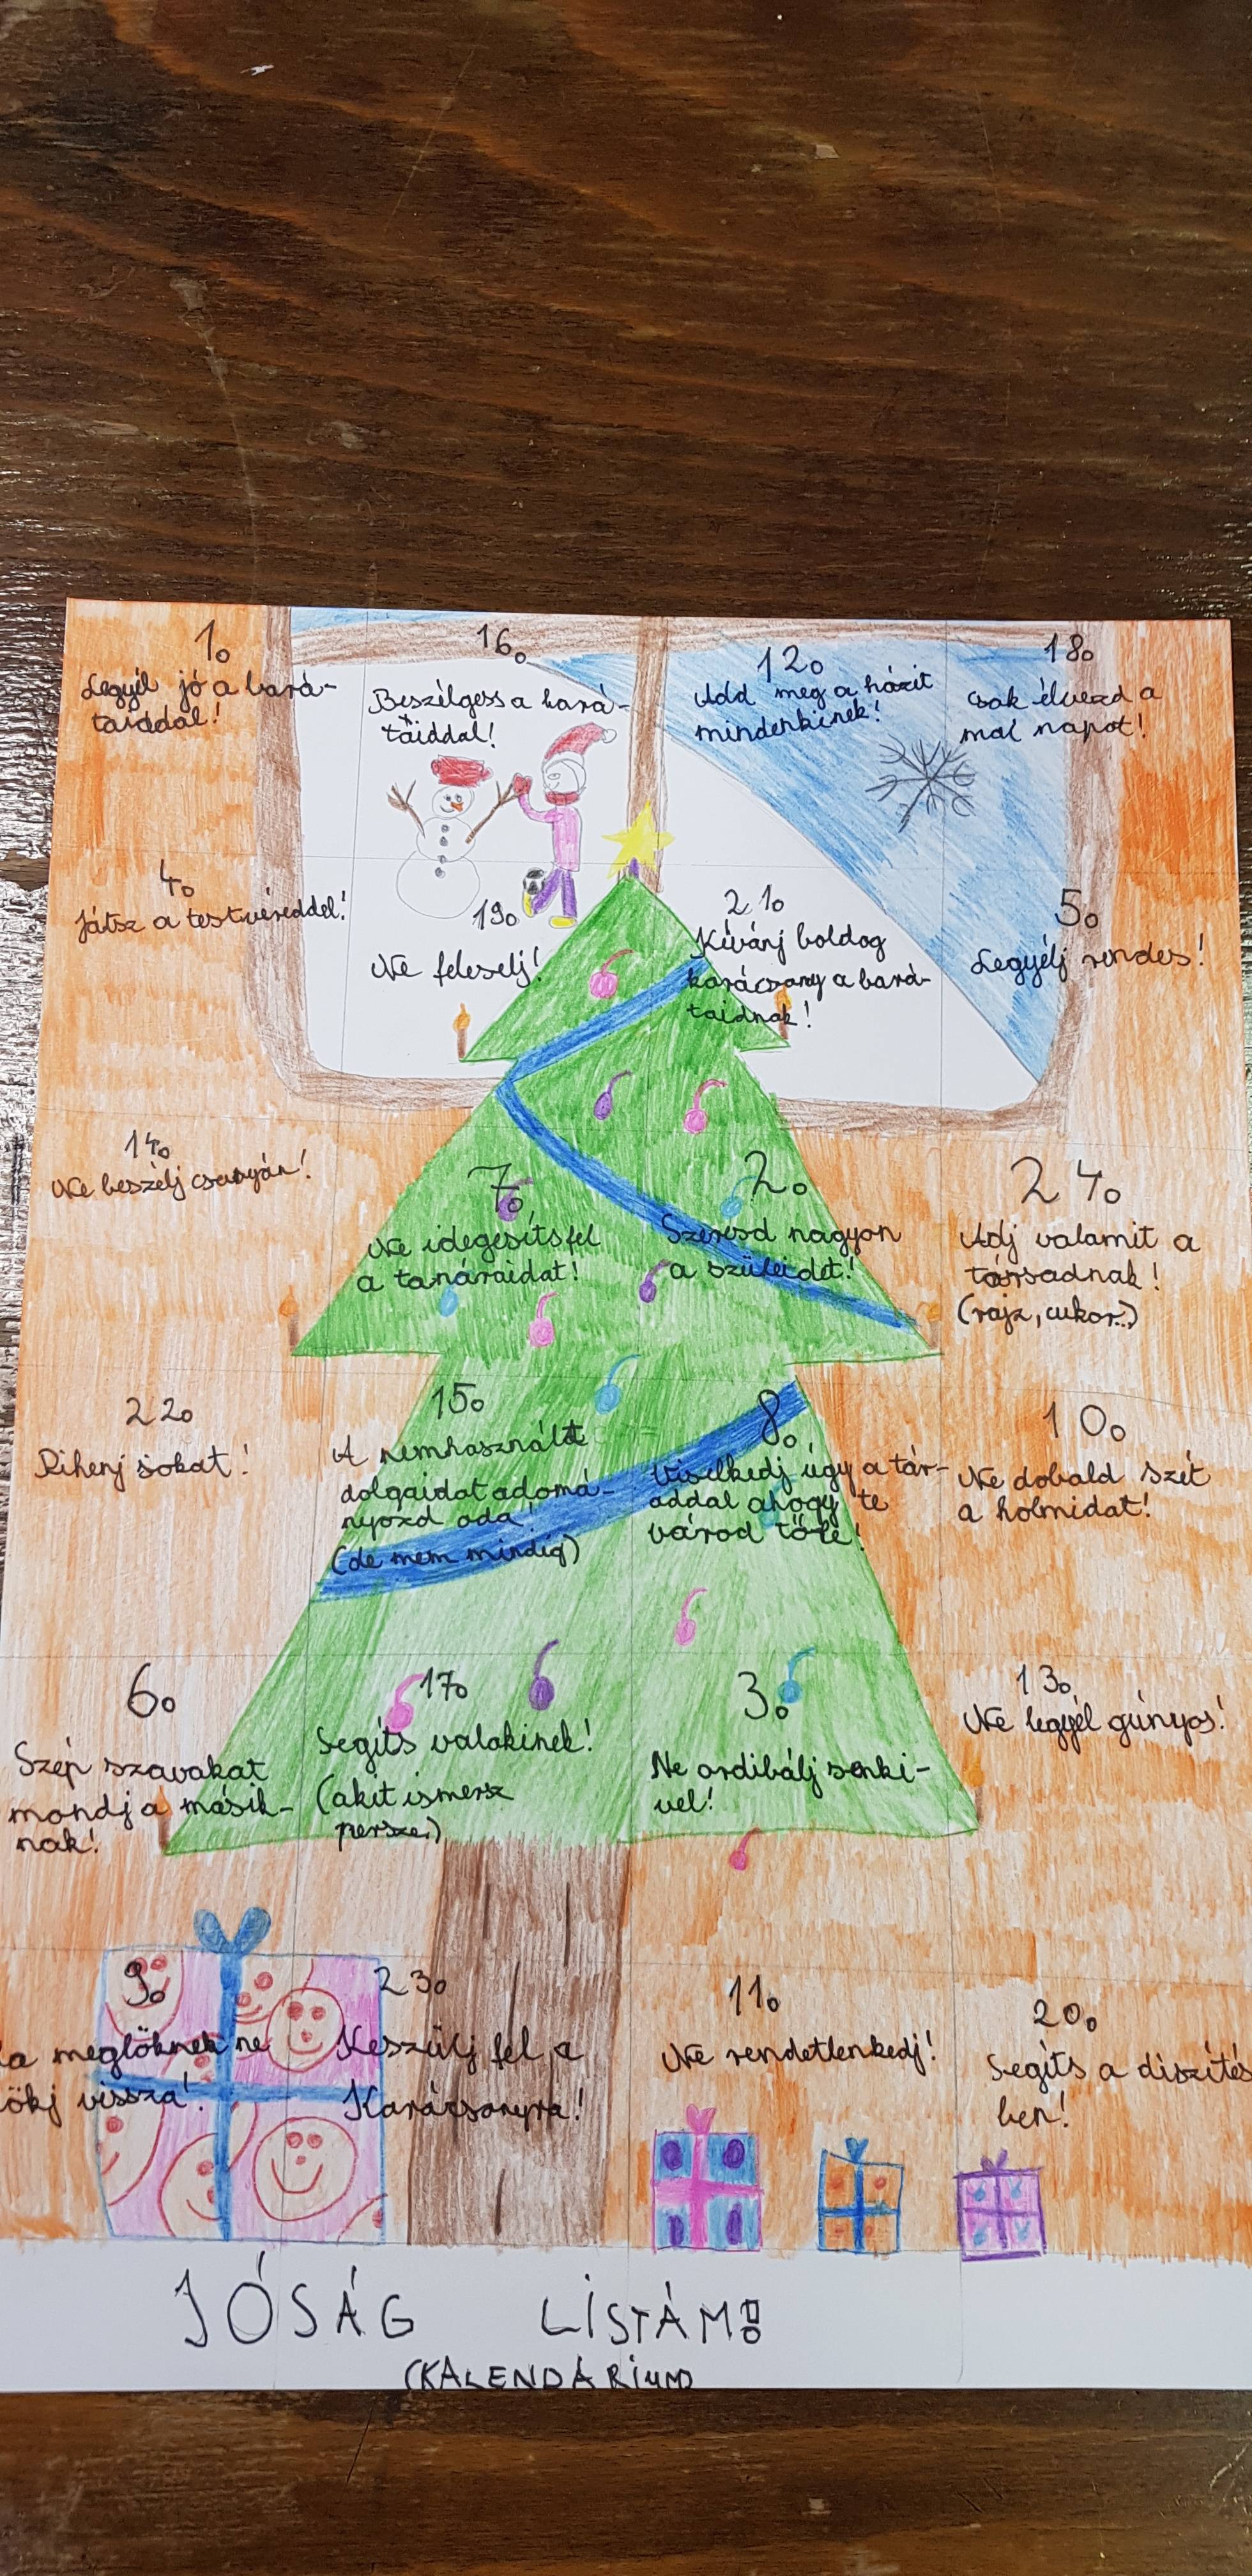 1.
Legyél jó a bará-
taiddal!
16.
Beszélgess a bará-
taiddal!
12.
Add meg a házit
mindenkinek!
18.
Csak élvezd a
mai napot!
4.
Játsz a testvéreddel!
19.
Ne feleselj!
21.
Kívánj boldog
karácsony a bará-
taidnak!
5.
Legyélj rendes!
14.
Ne beszélj csúnyán!
7.
Ne idegesíts fel
a tanáraidat!
2.
Szeresd nagyon
a szüleidet!
24.
Adj valamit a
társadnak!
(rajz, cukor...)
22.
Pihenj sokat!
15.
A nemhasznált
dolgaidat adomá-
nyozd oda!
(de nem mindig)
8.
Viselkedj úgy a tár-
addal ahogy te
várod tőle!
10.
Ne dobald szét
a holmidat!
6.
Szép szavakat
mondj a másik-
nak!
17.
Segíts valakinek!
(akit ismersz
persze.)
3.
Ne ordibálj senki-
vel!
13.
Ne legyél gúnyos!
9.
a meglöknek ne
ökj vissza!
23.
Készülj fel a
Karácsonyra!
11.
Ne rendetlenkedj!
20.
Segíts a díszítés
ben!
JÓSÁG LISTÁM!
(KALENDÁRIUM)